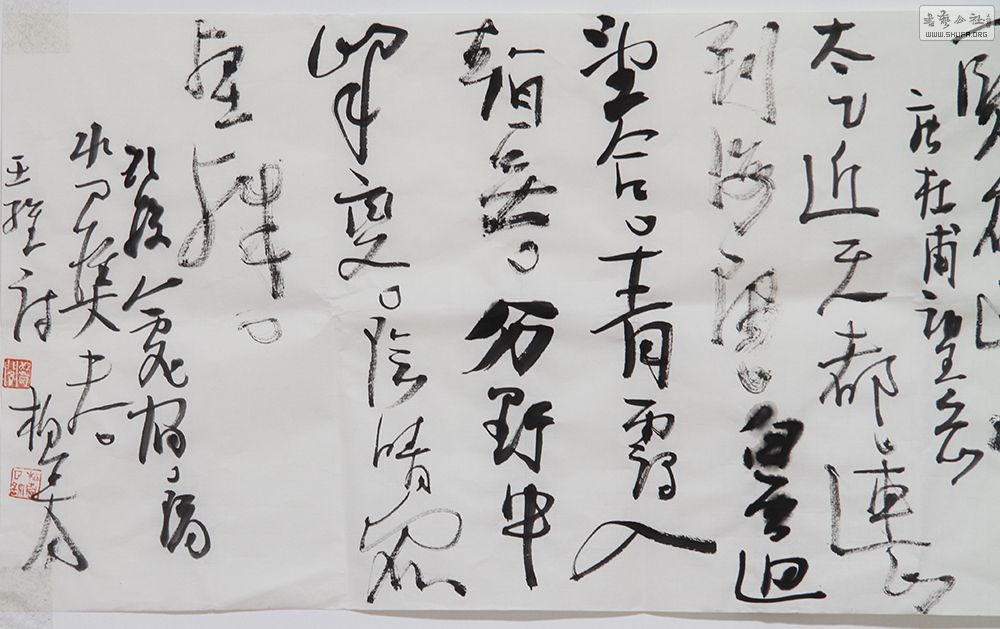 書藝公社
WWW.SHUFA.ORG
唐杜甫望岳
太乙近天都。連山
到海隅。白雲迴
望合。青靄入
看無。分野中
峯變。陰晴眾
壑殊。
欲投人處宿。隔
水問樵夫。
王維詩